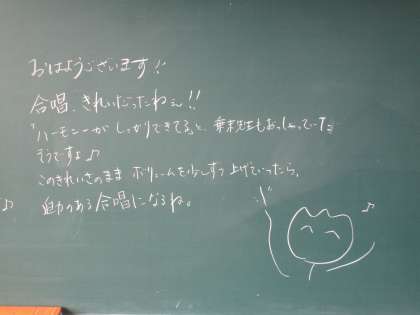 おはようございます!!
合唱、きれいだったねぇ!!
「ハーモニーがしっかりできてる」と、先生もおっしゃってた
そうですよ♪
このきれいさのまま ボリュームを少しずつ上げていったら、
♪ 迫力のある合唱になるね。
♪